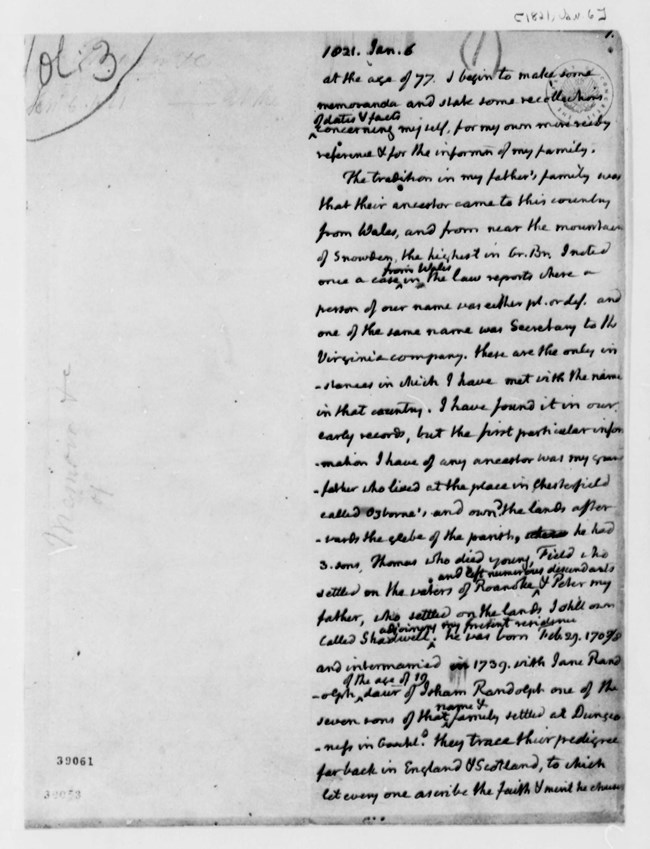 [1821, Jan. 6]
Vol: 3
1.
1821. Jan. 6
(1)
at the age of 77. I begin to make some
memoranda and state some recollections
of dates & facts
concerning myself, for my own more ready
reference & for the informn of my family.
The tradition in my father's family was
that their ancestor came to this country
from Wales, and from near the mountain
of Snowden, the highest in Gr. Br. I noted
from Wales
once a case in the law reports where a
person of our name was either pl. or def. and
one of the same name was Secretary to the
Virginia company. these are the only in
-stances in which I have met with the name
in that country. I have found it in our
early records, but the first particular infor
-mation I have of any ancestor was my grand
-father who lived at the place in Chesterfield
called Ozborne's and ownd. the lands after
-wards the glebe of the parish, he had
3. sons, Thomas who died young, Field who
and left numerous descendants
settled on the waters of Roanoke & Peter my
father, who settled on the lands I still own
adjoining my present residence
called Shadwell. he was born Feb. 29. 1707/8
and intermarried in 1739. with Jane Rand
of the age of 19
-olph, daur of Isham Randolph one of the
name &
seven sons of that family settled at Dunge
-ness in Goochld. they trace their pedigree
far back in England & Scotland, to which
let every one ascribe the faith & merit he chuses
Memoir &c
39061